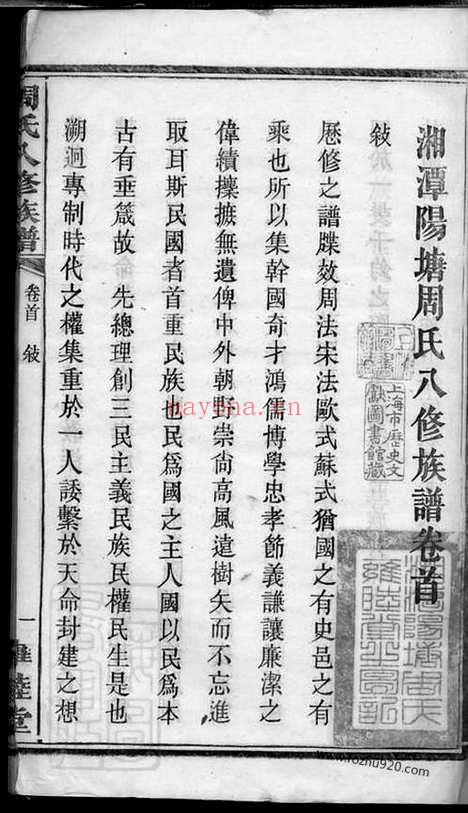 湘潭陽塘周氏八修族譜卷首
敍
歷修之譜牒效周法宋法歐式蘇式猶國之有史邑之有
乘也所以集幹國奇才鴻儒博學忠孝節義謙讓廉潔之
偉績攗摭無遺俾中外朝野崇尚高風遠樹矢而不忘進
取耳斯民國者首重民族也民爲國之主人國以民爲本
古有垂箴故 先總理創三民主義民族民權民生是也
溯迥專制時代之權集重於一人諉繫於天命封建之想
周氏八修族譜
卷首 敍
一
雍睦堂
上海市歷史文
獻圖書館藏
湘潭陽塘周氏
雍睦堂之圖記
nayona.cn
www.rozhu920.com